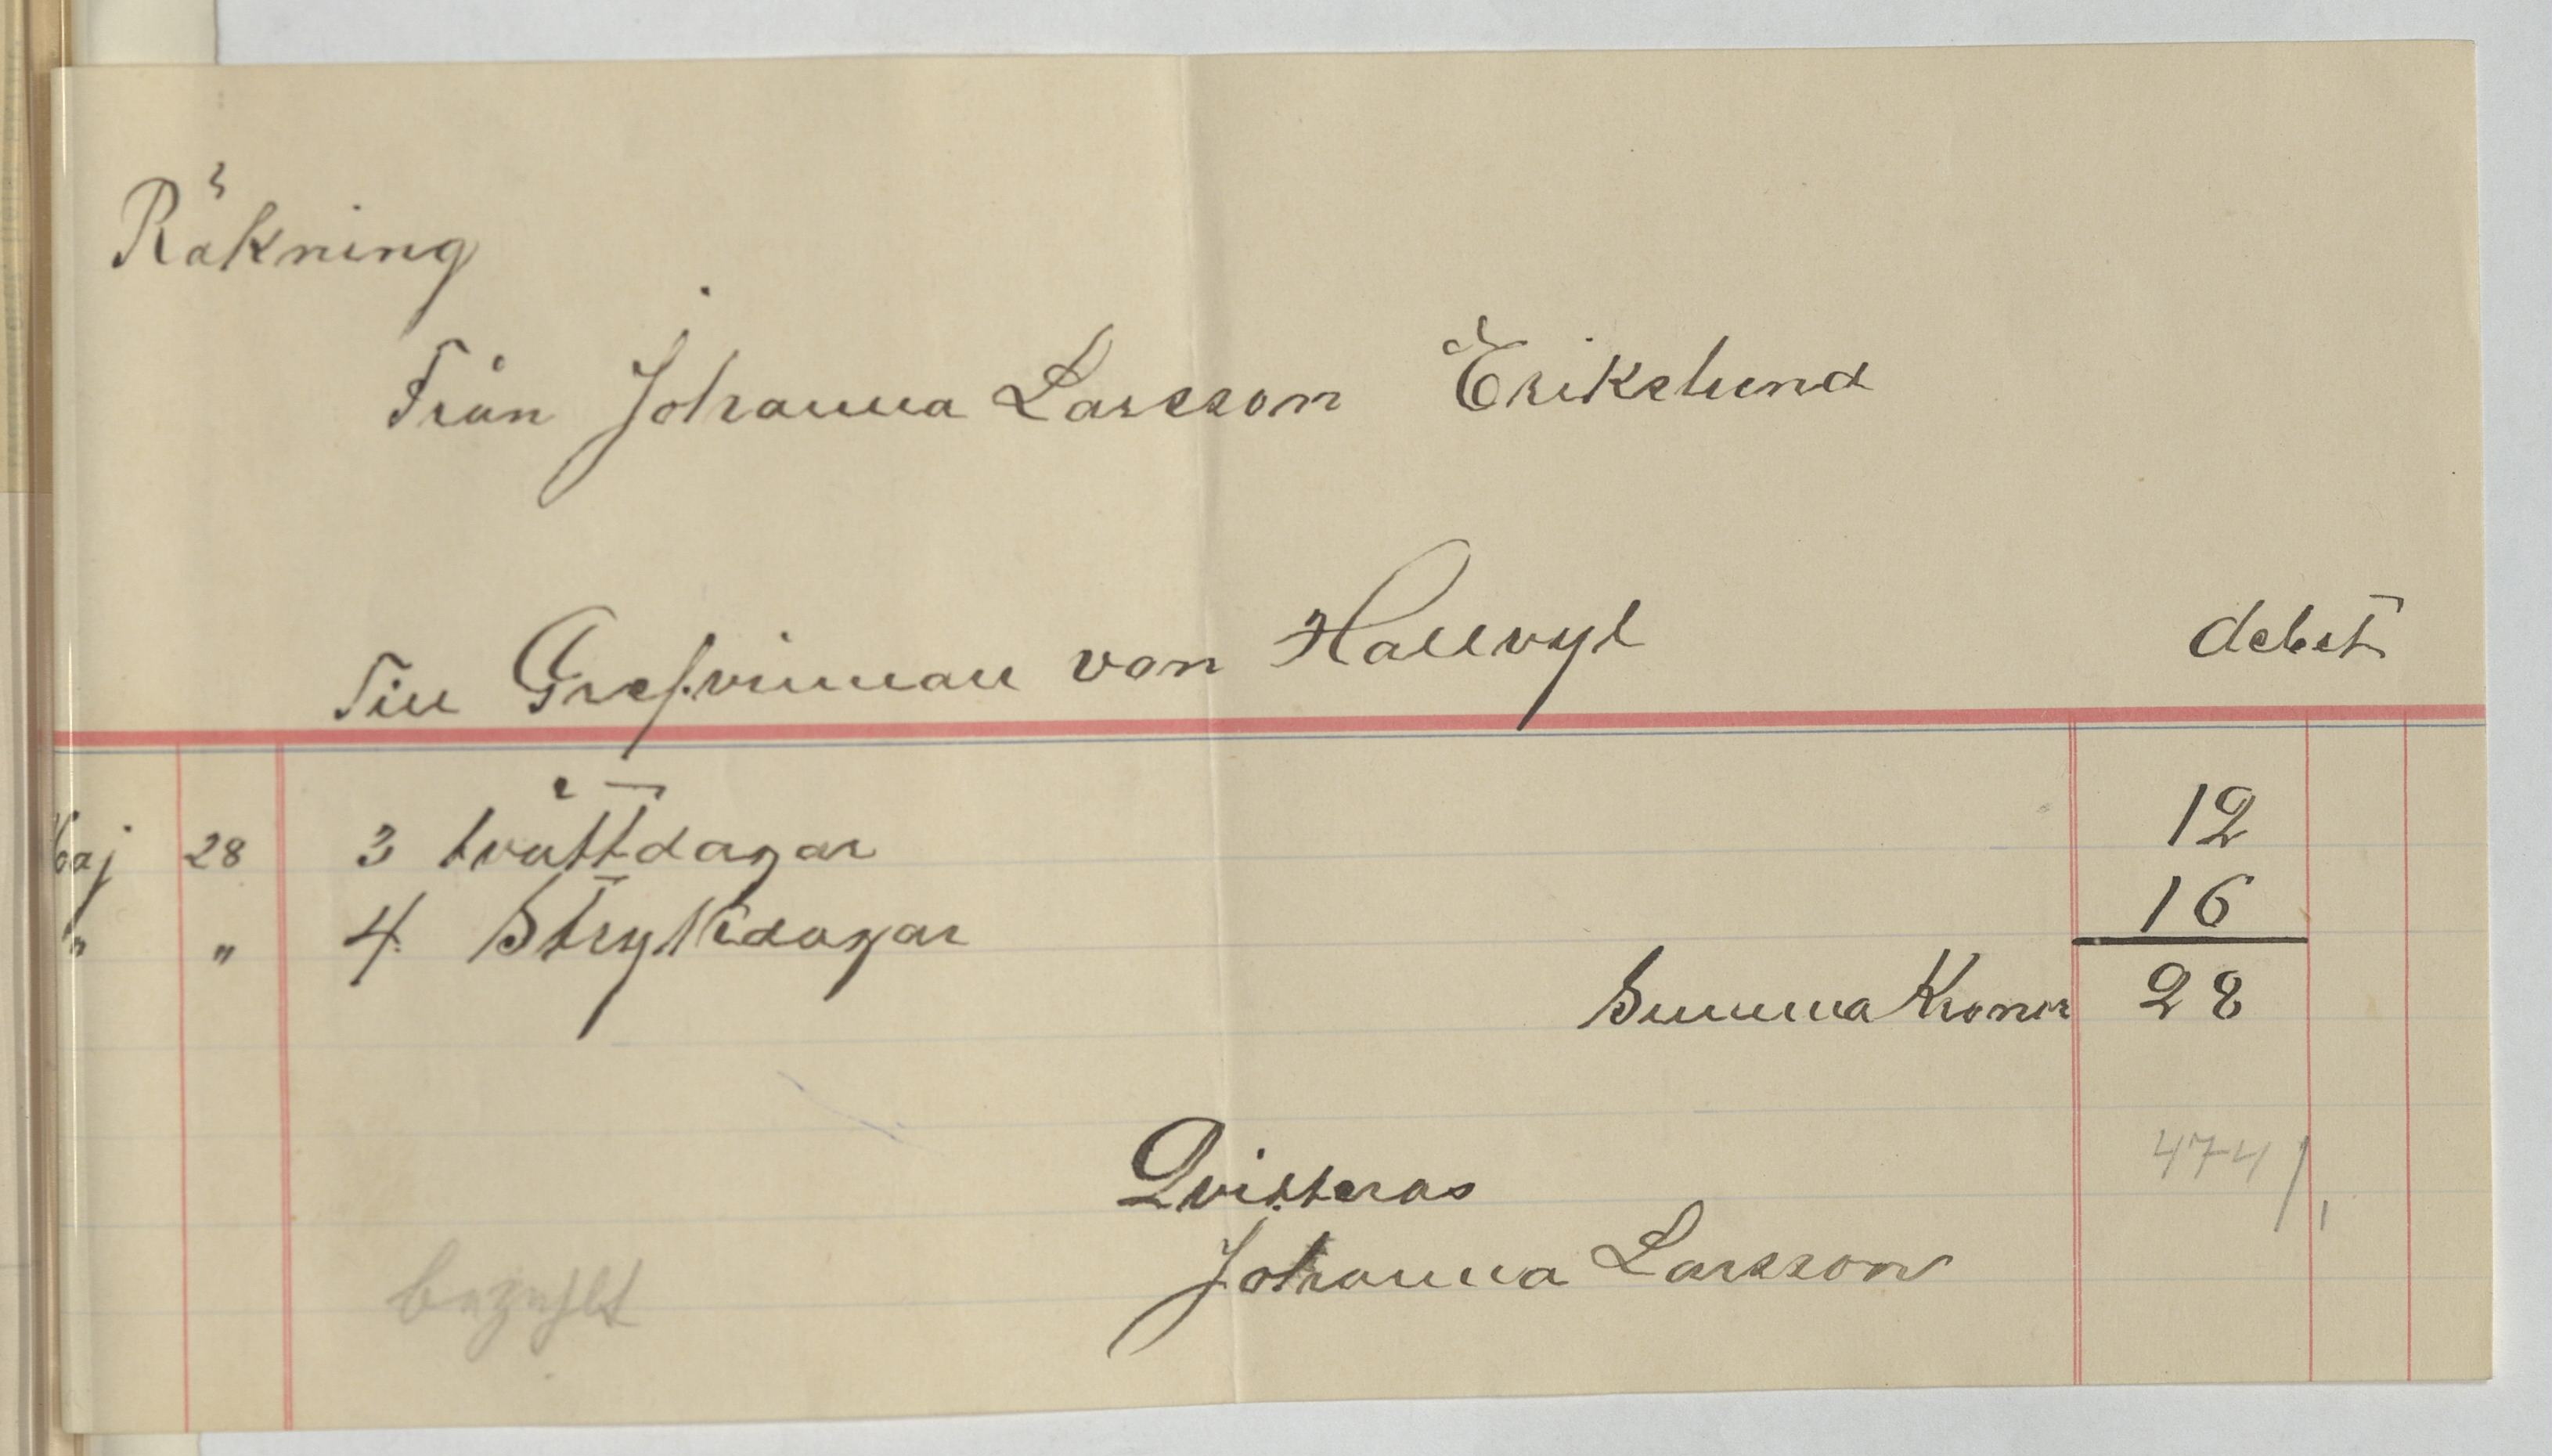 Räkning
Från Johanna Larsson Erikslund
Till Grefvinnan von Hallvyl debet
Maj 28 3 tvättdagar 12
" " 4 Strykdagar 16
Summa Kronor 28
474
Qvitteras
Johanna Larsson
bezahlt